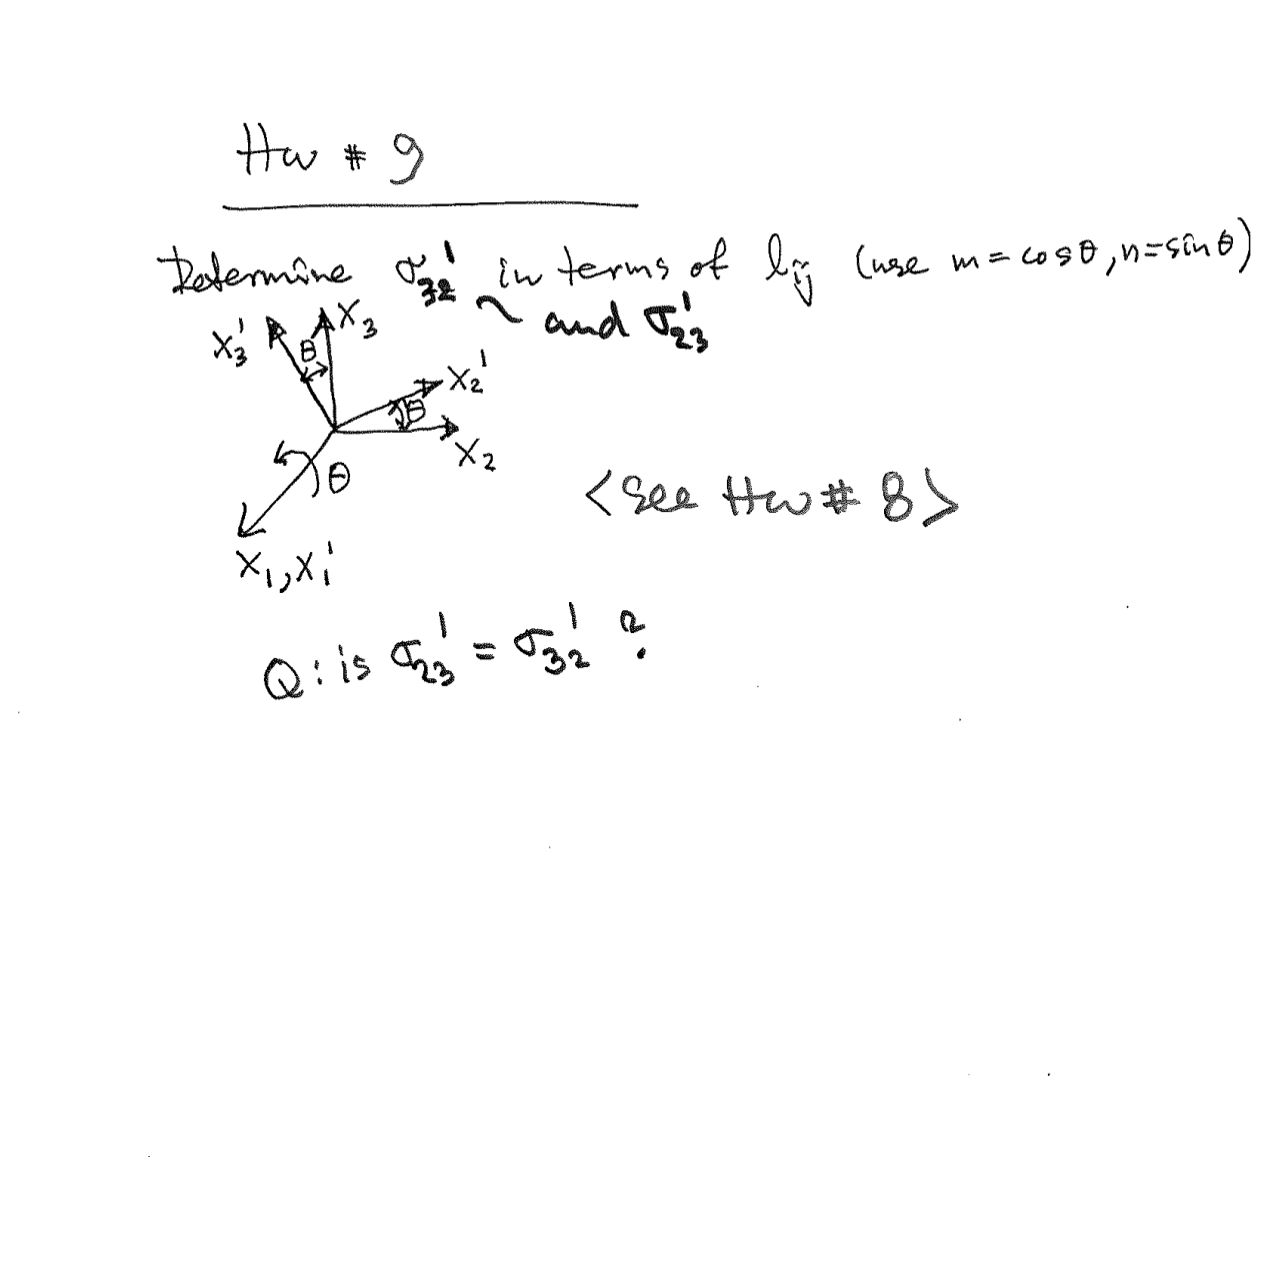 Hw # 9
Determine σ₃₂' in terms of lij (use m = cosθ, n = sinθ)
and σ₂₃'
X₃' θ X₃
X₂'
θ
X₂
θ
X₁, X₁'
<See Hw # 8>
Q: is σ₂₃' = σ₃₂' ?